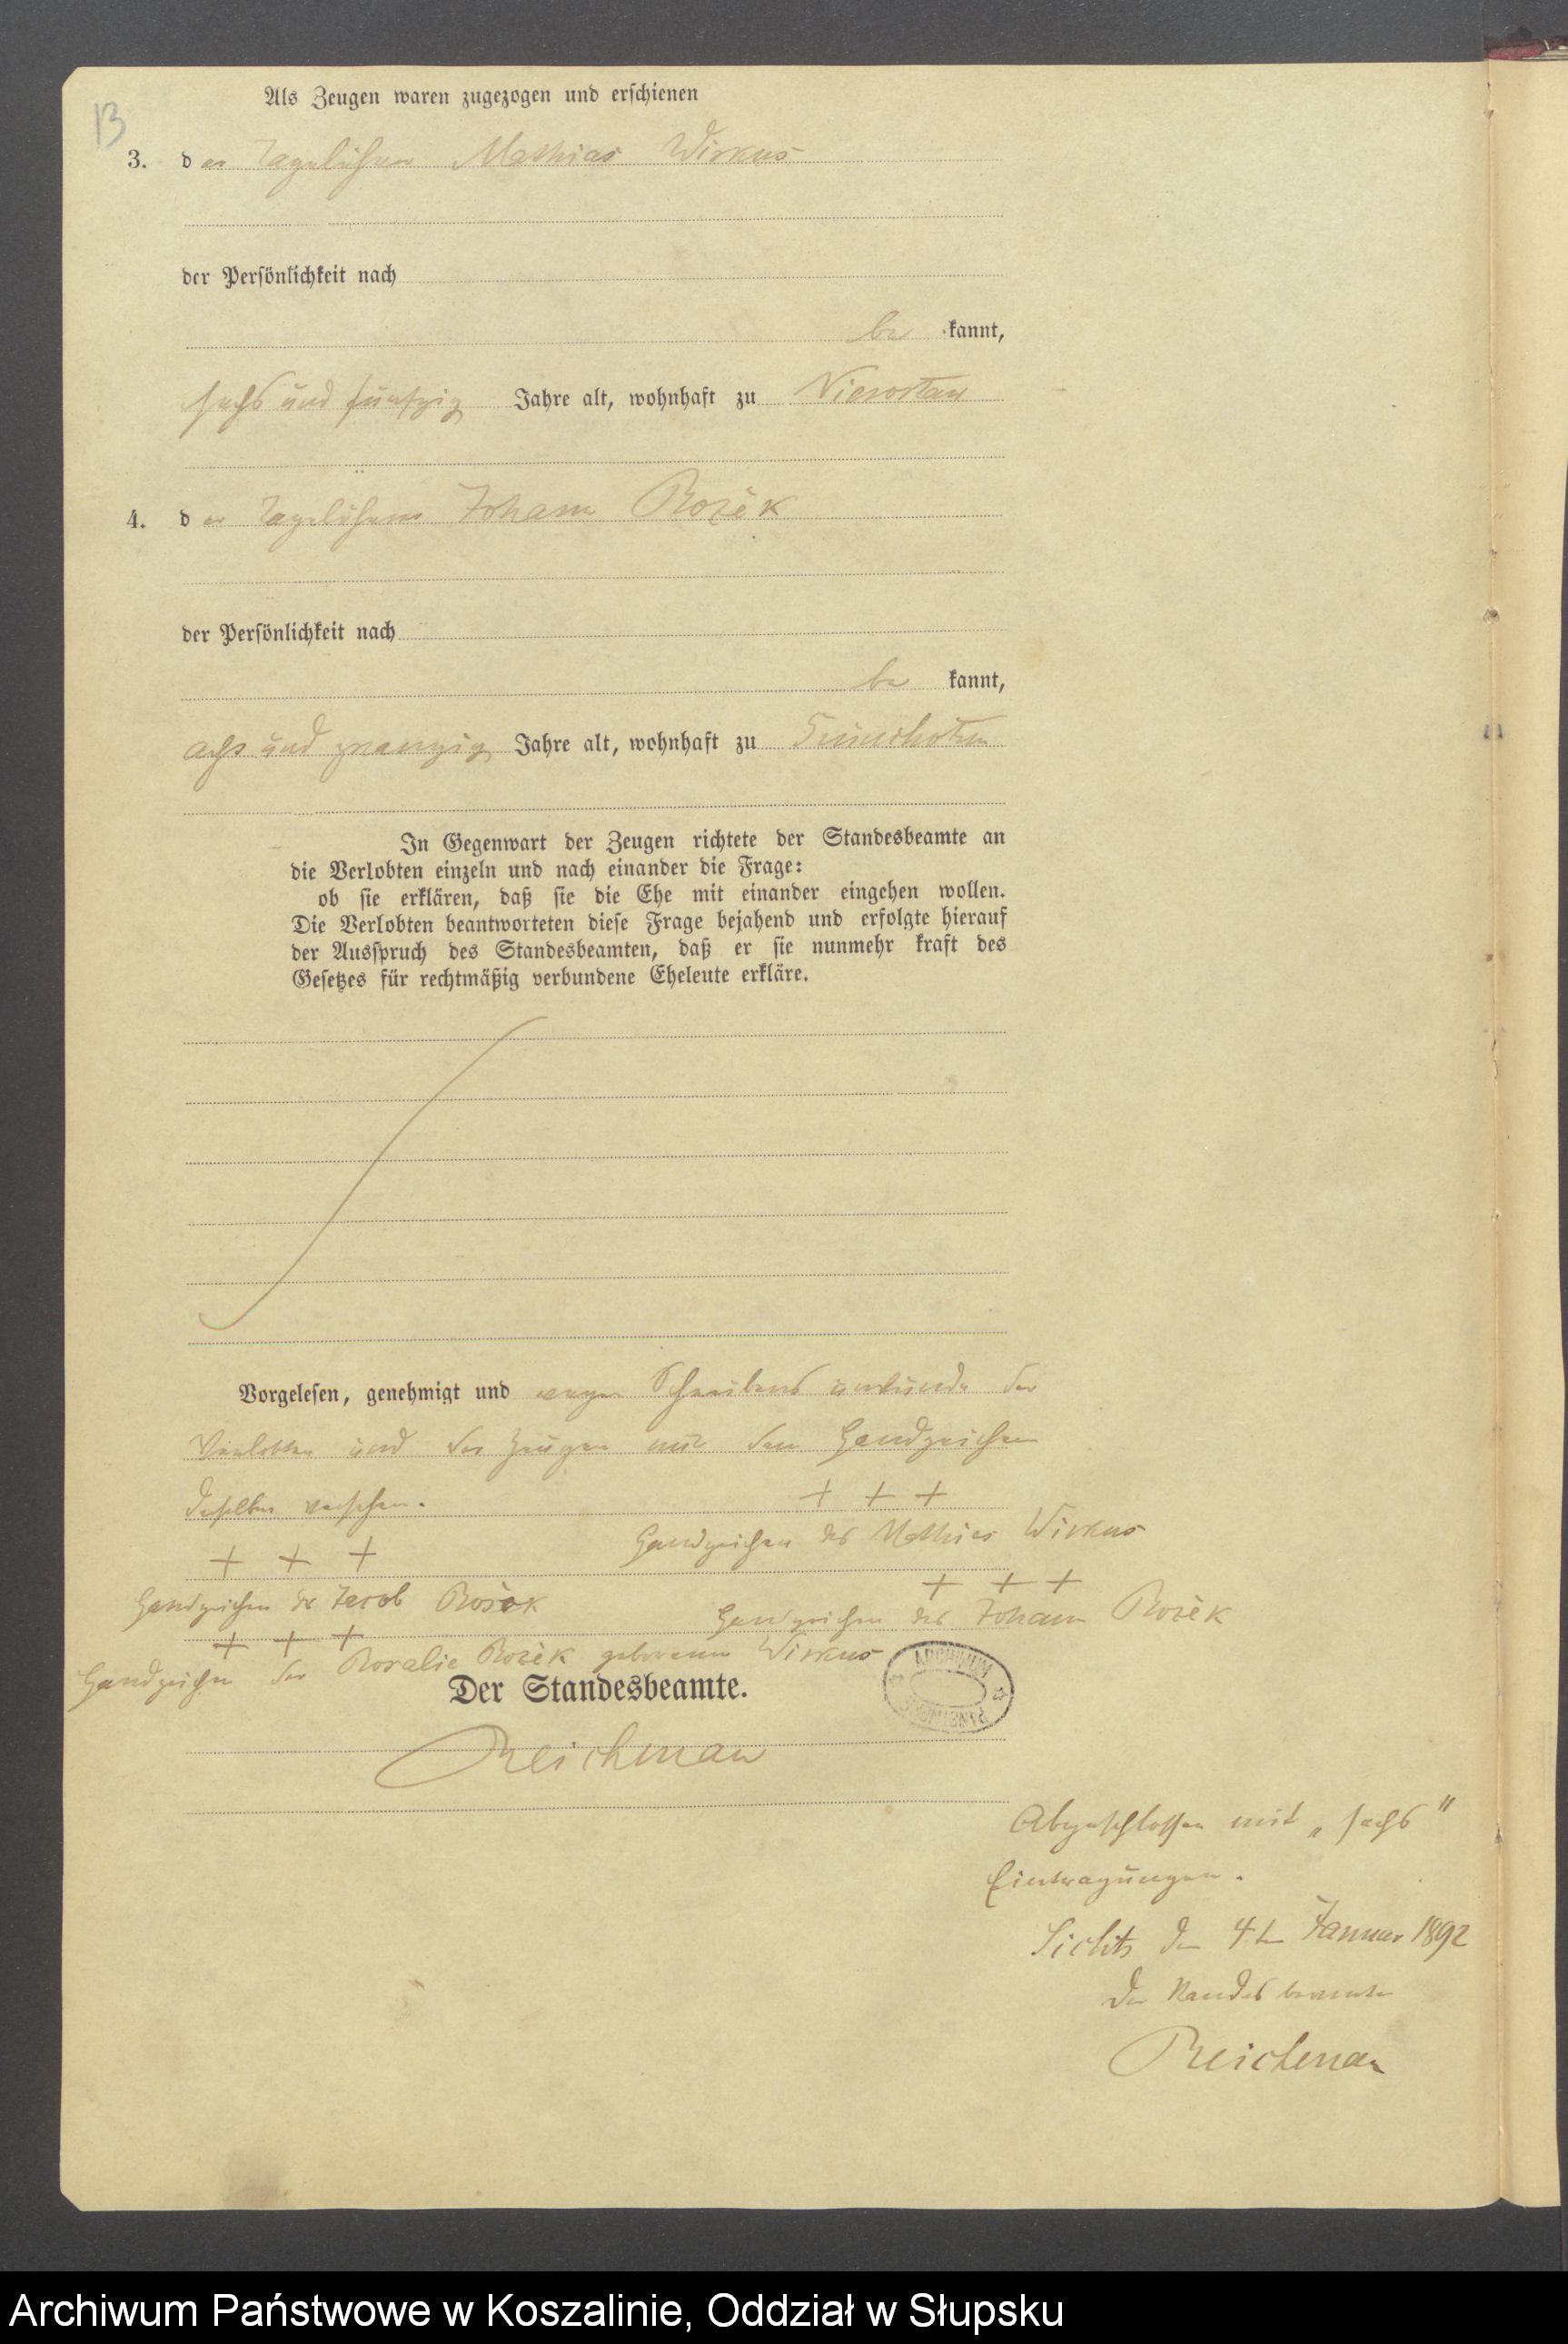 13
Als Zeugen waren zugezogen und erschienen
3. der Tagelöhner Mathias Wirkus
der Persönlichkeit nach
be kannt,
sechs und fünfzig Jahre alt, wohnhaft zu Niesostau
4. der Tagelöhner Johann Rozèk
der Persönlichkeit nach
be kannt,
acht und zwanzig Jahre alt, wohnhaft zu
In Gegenwart der Zeugen richtete der Standesbeamte an
die Verlobten einzeln und nach einander die Frage:
ob sie erklären, daß sie die Ehe mit einander eingehen wollen.
Die Verlobten beantworteten diese Frage bejahend und erfolgte hierauf
der Ausspruch des Standesbeamten, daß er sie nunmehr kraft des
Gesetzes für rechtmäßig verbundene Eheleute erkläre.
Vorgelesen, genehmigt und wegen Schreibens unkunde der
Verlobten und der Zeugen mit den Handzeichen
derselben versehen.
+ + +
Handzeichen des Mathias Wirkus
+ + +
Handzeichen des Jacob Rozèk
+ + +
Handzeichen des Johann Rozèk
+ + +
Handzeichen der Rosalie Rozèk geborenen Wirkus
Der Standesbeamte.
ARCHIWUM
Reichenau
Abgeschlossen mit „sechs"
Eintragungen.
Sichts den 4ten Januar 1892
Der Standesbeamte
Reichenau
Archiwum Państwowe w Koszalinie, Oddział w Słupsku